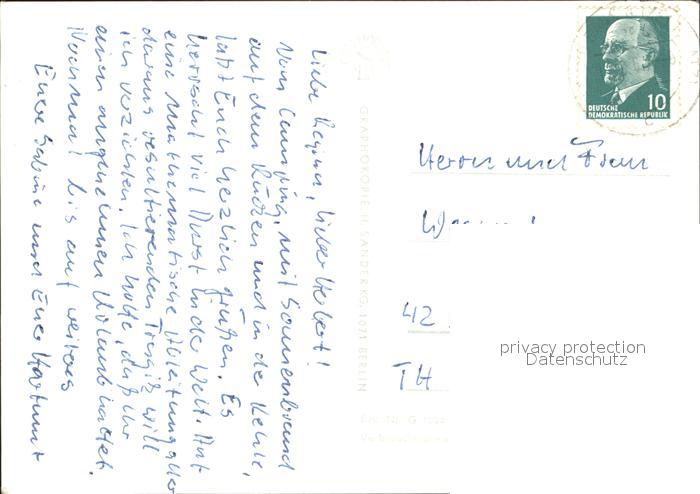 Liebe Regina, lieber Herbert!
Vom Camping, mit Sonnenbrand
auf dem Rücken und in der Kehle,
laßt Euch herzlich grüßen. Es
herrscht viel Durst in der Welt. Auf
eine mathematische Ableitung aller
daraus resultierenden will
ich verzichten. Ich hoffe, daß Ihr
einen angenehmen Urlaub hattet.
Nochmal bis auf weiteres
Eure Sabine und Euer Hartmut
GRAPHOKOPIE H. SANDER KG, 1071 BERLIN
DEUTSCHE
DEMOKRATISCHE REPUBLIK
10
Herrn und Frau
42
TH
privacy protection
Datenschutz